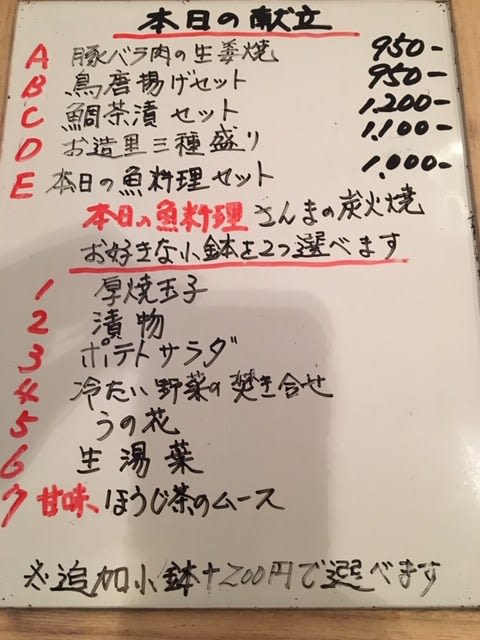 本日の献立
A 豚バラ肉の生姜焼 950-
B 鳥唐揚げセット 950-
C 鯛茶漬セット 1,200-
D お造里三種盛り 1,100-
E 本日の魚料理セット 1,000-
本日の魚料理 さんまの炭火焼
お好きな小鉢を2つ選べます
1 厚焼玉子
2 漬物
3 ポテトサラダ
4 冷たい野菜の焚き合せ
5 うの花
6 生湯葉
7 甘味 ほうじ茶のムース
※追加小鉢+200円で選べます